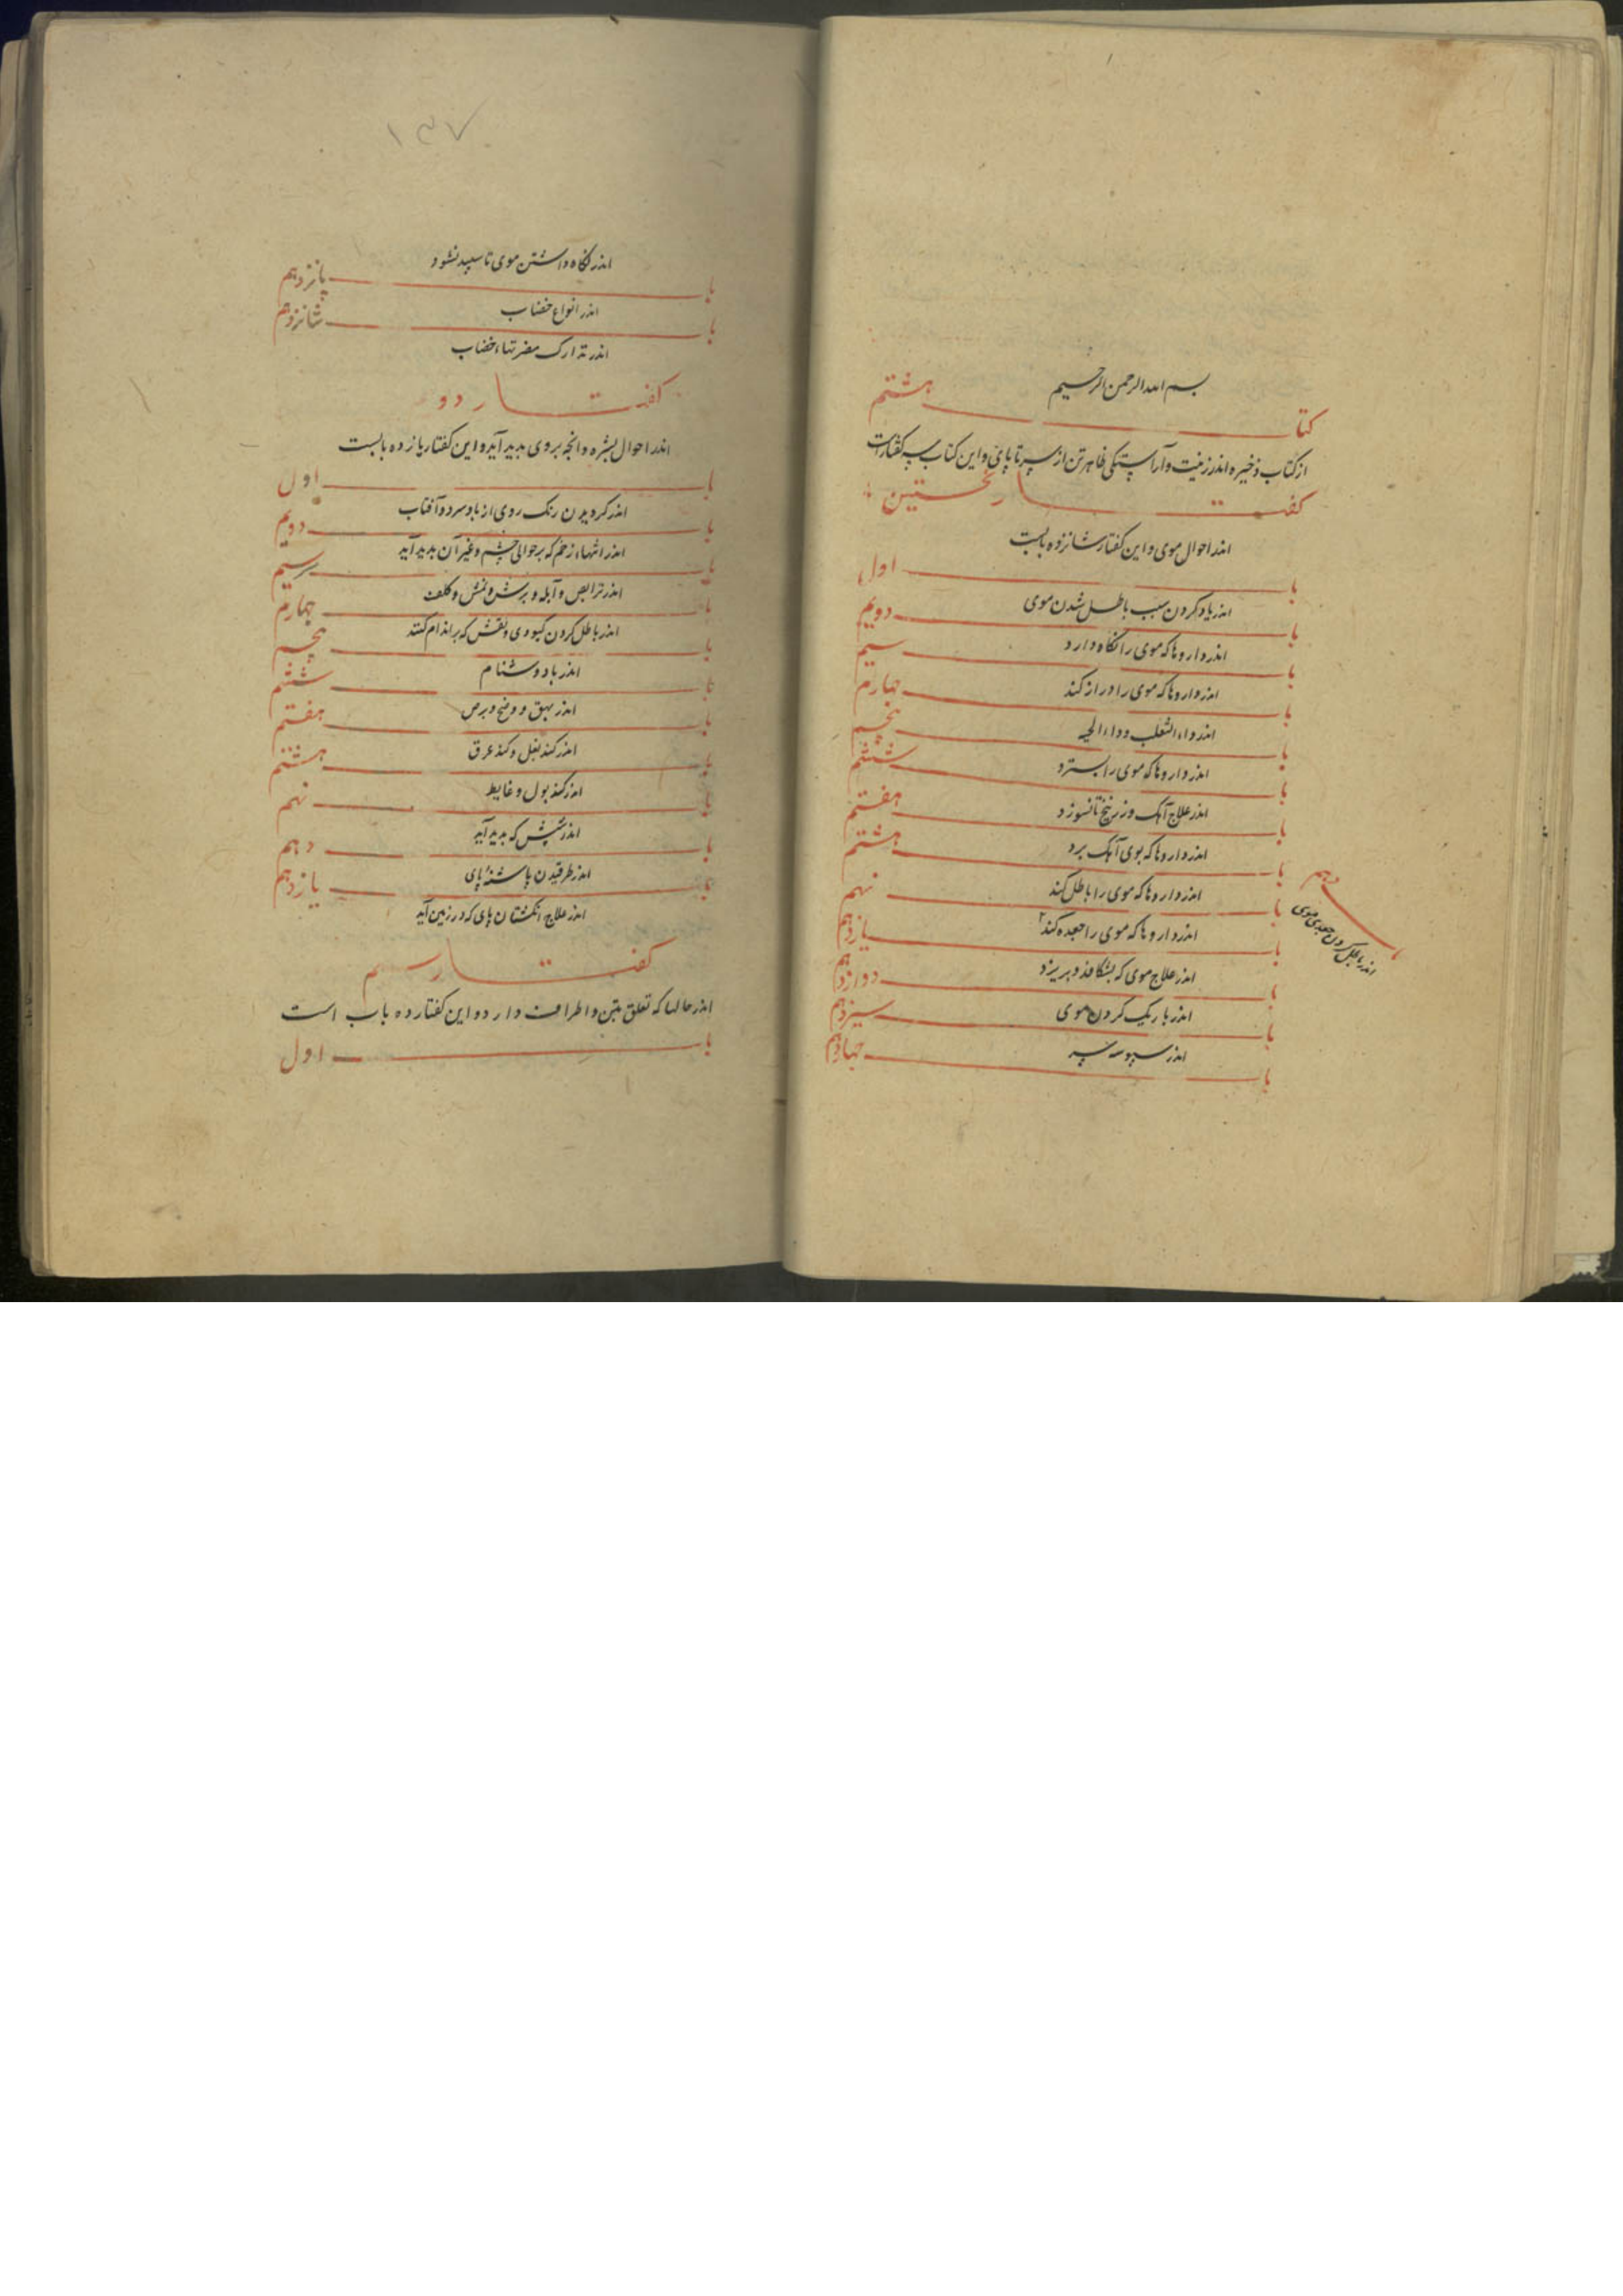 بسم الله الرحمن الرحیم
کتاب هشتم
از کتاب ذخیره اندر زینت و آراستگی ظاهر تن از سر تا پای و این کتاب سه گفتارست
گفتار نخستین
اندر احوال موی و این گفتار شانزده بابست
باب اول
اندر یاد کردن سبب باطل شدن موی
باب دویم
اندر داروها که موی را نگاه دارد
باب سیم
اندر داروها که موی را دراز کند
باب چهارم
اندر داء الثعلب و داء الحیه
باب پنجم
اندر داروها که موی را بسترد
باب ششم
اندر علاج آهک و زرنیخ تا نسوزد
باب هفتم
اندر داروها که بوی آهک برد
باب هشتم
اندر داروها که موی را باطل کند
باب نهم
اندر داروها که موی را جعده کند
باب دهم
اندر باطل کردن جعدی موی
باب یازدهم
اندر علاج موی که بشکافد و بریزد
باب دوازدهم
اندر باریک کردن موی
باب سیزدهم
اندر سبوسه سر
باب چهاردهم
۱۳۷
اندر نگاه داشتن موی تا سپید نشود
باب پانزدهم
اندر انواع خضاب
باب شانزدهم
اندر تدارک مضرتهاء خضاب
گفتار دو
اندر احوال بشره و انچه بر وی پدید آید و این گفتار یازده بابست
باب اول
اندر گردیدن رنگ روی از باد سرد و آفتاب
باب دویم
اندر اثرهاء زخم که بر حوالی چشم و غیر آن پدید آید
باب سیم
اندر و آبله و برش و نمش و کلف
باب چهارم
اندر باطل کردن کبودی و نقش که بر اندام کنند
باب پنجم
اندر بادوشنام
باب ششم
اندر بهق و وضح و برص
باب هفتم
اندر گند بغل و گند عرق
باب هشتم
اندر گند بول و غایط
باب نهم
اندر شپش که پدید آید
باب دهم
اندر طرقیدن پاشنه پای
باب یازدهم
اندر علاج انگشتان پای که در زمین آید
گفتار سیم
اندر حالها که تعلق بتن و اطراف دارد و این گفتار ده باب است
باب اول